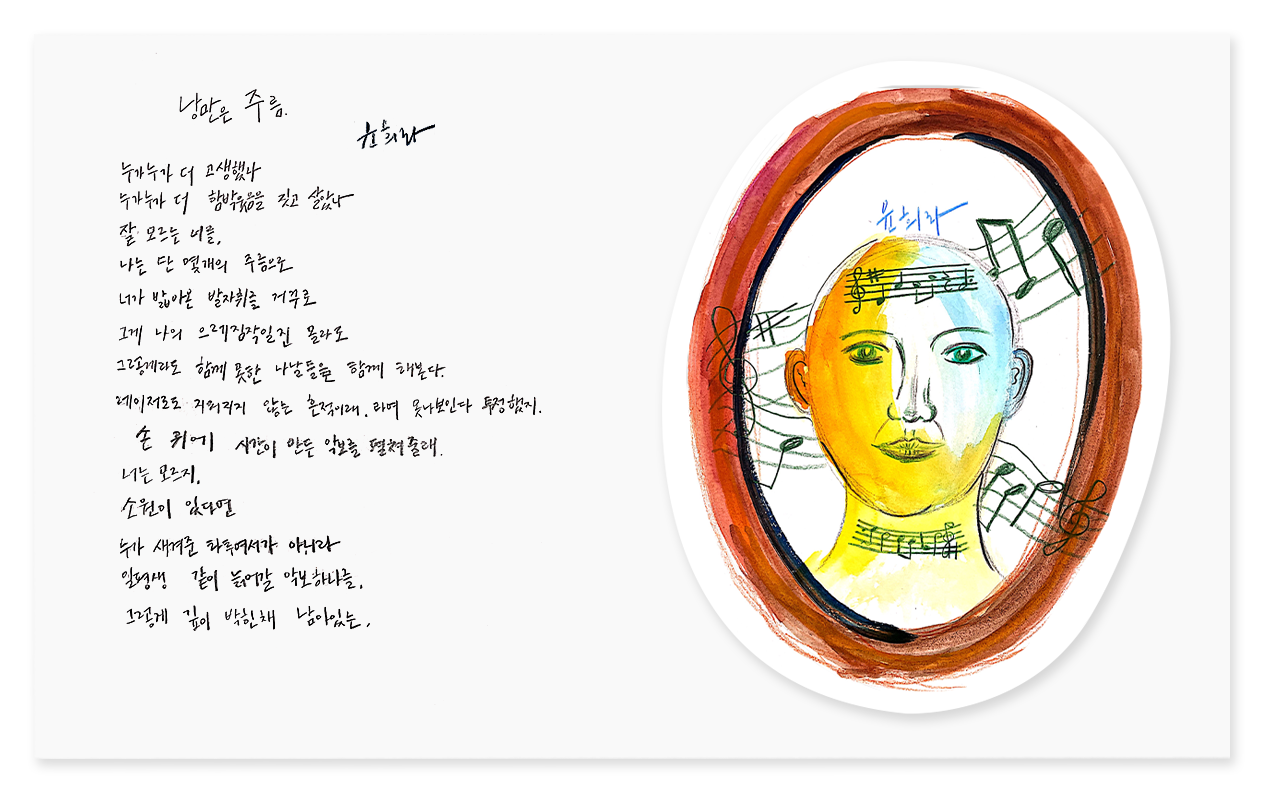 낭만은 주름.
윤희라
누가누가 더 고생했나
누가누가 더 함박웃음을 짓고 살았나
잘 모르는 너를,
나는 단 몇개의 주름으로
너가 밟아온 발자취를 거꾸로
그게 나의 으레짐작일진 몰라도
그렇게라도 함께 못한 나날들을 함께 해본다.
레이저로도 지워지지 않는 흔적이래. 라며 못나보인다 투정했지.
손 위에 시간이 만든 악보를 펼쳐줄래.
너는 모르지.
소원이 있다면
누가 새겨준 타투여서가 아니라
일평생 같이 늙어갈 악보 하나를.
그렇게 깊이 박힌채 남아있는.
윤희라